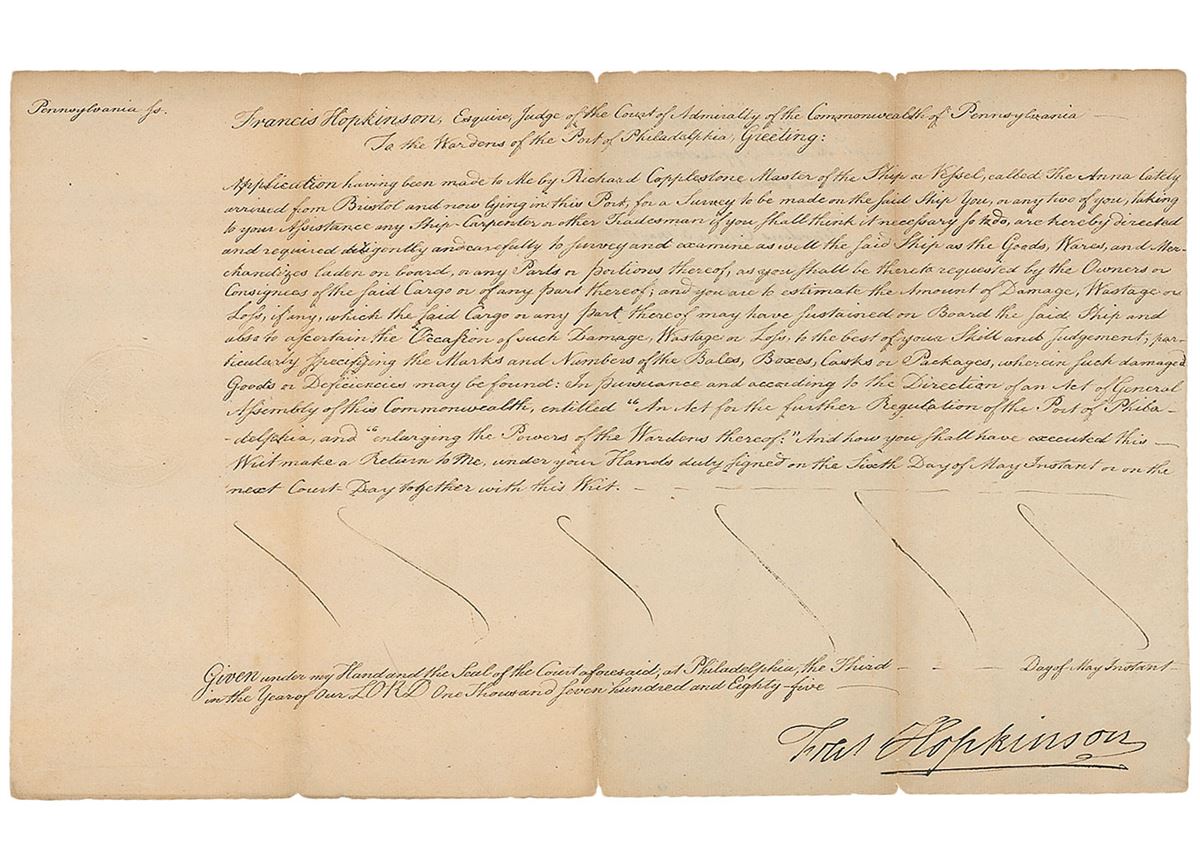 Pennsylvania ss.
Francis Hopkinson, Esquire, Judge of the Court of Admiralty of the Commonwealth of Pennsylvania
To the Wardens of the Port of Philadelphia, Greeting:
Application having been made to Me by Richard Copplestone Master of the Ship or Vessel, called The Anna lately
arrived from Bristol and now lying in this Port, for a Survey to be made on the said Ship You, or any two of you, taking
to your Assistance any Ship-Carpenter or other Tradesman if you shall think it necessary so to do, are hereby directed
and required diligently and carefully to survey and examine as well the said Ship as the Goods, Wares, and Mer-
chandizes laden on board, or any Parts or portions thereof, as you shall be thereto requested by the Owners or
Consignees of the said Cargo or of any part thereof; and you are to estimate the Amount of Damage, Wastage or
Loss, if any, which the said Cargo or any part thereof may have sustained on Board the said Ship and
also to ascertain the Occasion of such Damage, Wastage or Loss, to the best of your Skill and Judgement; par-
ticularly specifying the Marks and Numbers of the Bales, Boxes, Casks or Packages, wherein such damaged
Goods or Deficiencies may be found: In pursuance and according to the Direction of an Act of General
Assembly of this Commonwealth, entitled "An Act for the further Regulation of the Port of Phila-
-delphia, and "enlarging the Powers of the Wardens thereof:" And how you shall have executed this
Writ make a Return to Me, under your Hands duly signed on the Sixth Day of May Instant or on the
next Court-Day together with this Writ.
Given under my Hand and the Seal of the Court aforesaid, at Philadelphia, the Third Day of May Instant
in the Year of Our LORD One Thousand seven hundred and Eighty-five
Fras Hopkinson